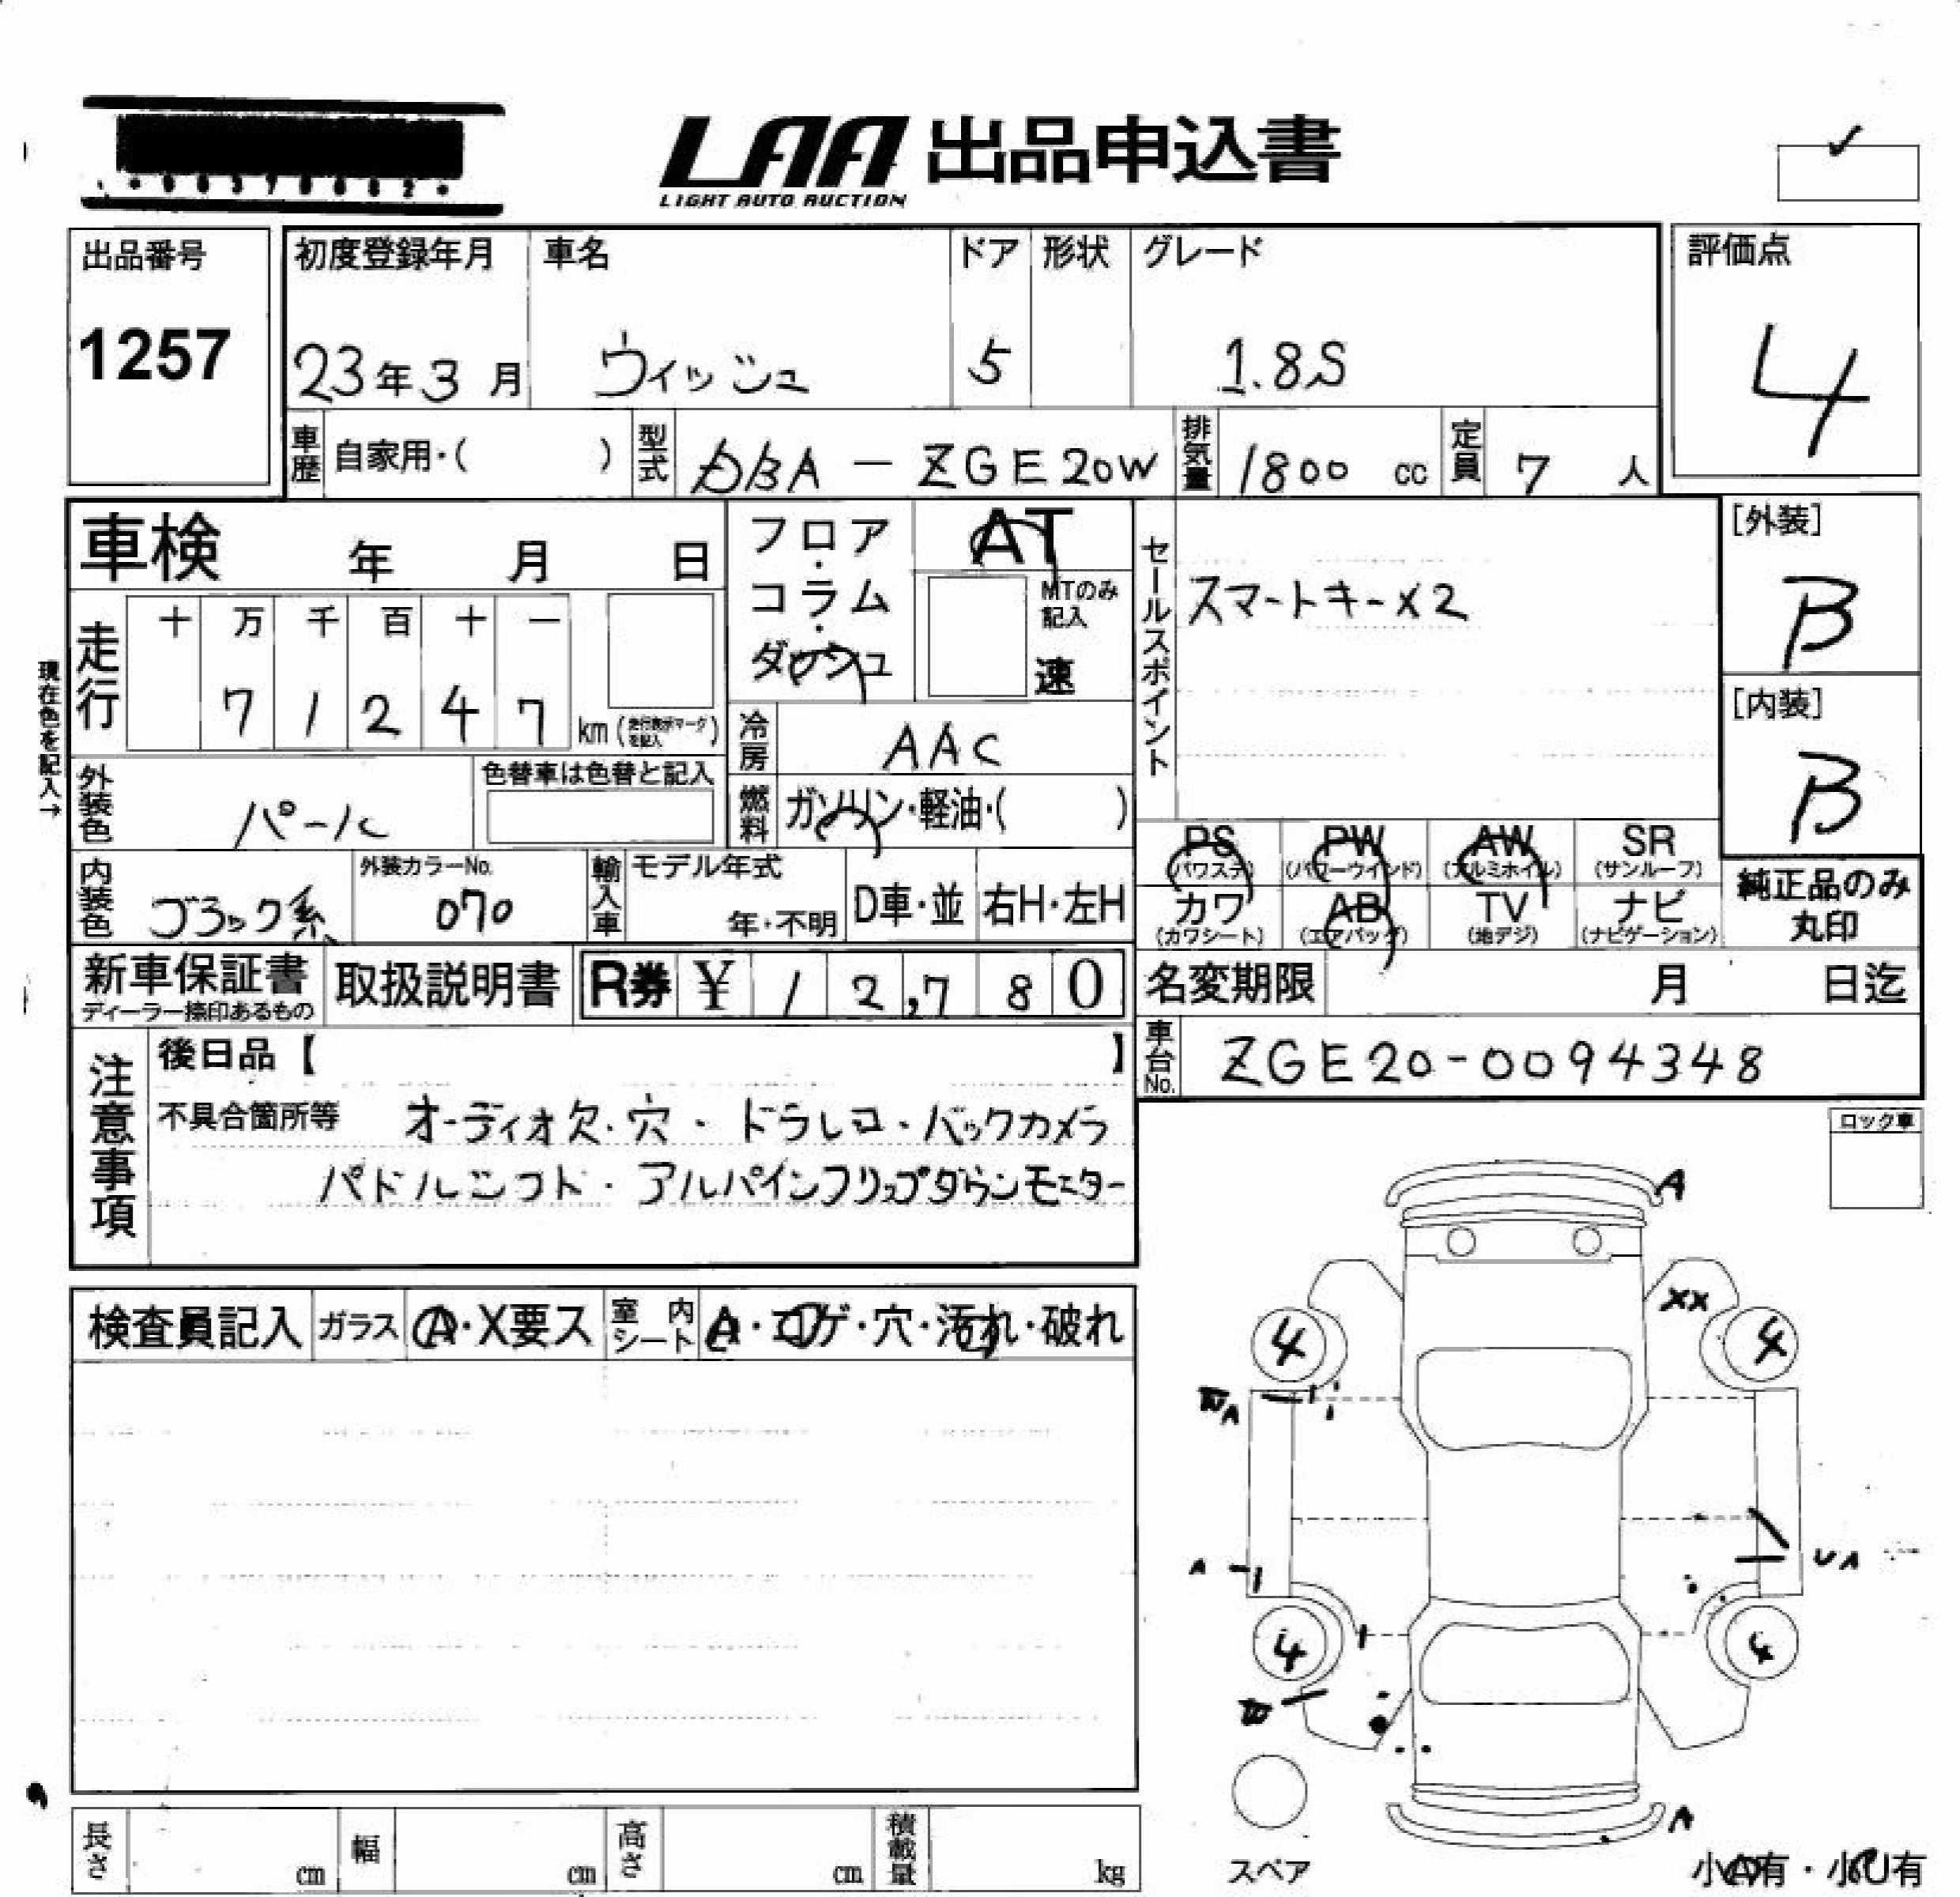 LAA 出品申込書
LIGHT AUTO AUCTION
出品番号
1257
初度登録年月 車名 ドア 形状 グレード
23年3月 ウィッシュ 5 1.8S
評価点
4
車歴 自家用・( ) 型式 DBA-ZGE20W 排気量 1800 cc 定員 7 人
車検 年 月 日
フロア・コラム・ダッシュ
AT
MTのみ記入
速
セールスポイント
スマートキー×2
[外装]
B
[内装]
B
現在色を記入→
走行
十 万 千 百 十 一
7 1 2 4 7 km (走行表示マークを記入)
冷房 AAC
外装色 パール 色替車は色替と記入
燃料 ガソリン・軽油・( )
PS AW SR
PW
(パワステ) (パワーウインド) (アルミホイル) (サンルーフ)
カワ AB TV ナビ
(カワシート) (エアバッグ) (地デジ) (ナビゲーション)
純正品のみ
丸印
内装色 ブラック系 外装カラーNo. 070
輸入車 モデル年式 年・不明 D車・並 右H・左H
新車保証書
ディーラー捺印あるもの
取扱説明書
R券 ¥ 12,780
名変期限 月 日迄
車台No. ZGE20-0094348
注意事項
後日品【 】
不具合箇所等 オーディオ欠・穴・ドラレコ・バックカメラ
パドルシフト・アルパインフリップダウンモニター
ロック車
検査員記入 ガラス A・X要ス 室内シート A・コゲ・穴・汚れ・破れ
A
XX
4 4
A
UA
4 4
A
スペア
小A有・小U有
長さ cm 幅 cm 高さ cm 積載量 kg